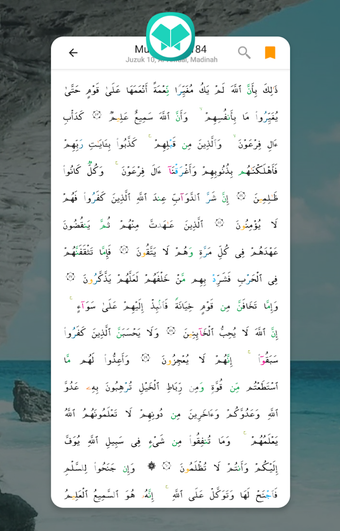 Mu 184
Juzuk 10, Al-Anfal, Madinah
ذَٰلِكَ بِأَنَّ ٱللَّهَ لَمْ يَكُ مُغَيِّرًا نِّعْمَةً أَنْعَمَهَا عَلَىٰ قَوْمٍ حَتَّىٰ
يُغَيِّرُوا۟ مَا بِأَنفُسِهِمْ ۙ وَأَنَّ ٱللَّهَ سَمِيعٌ عَلِيمٌ ۝ كَدَأْبِ
ءَالِ فِرْعَوْنَ ۙ وَٱلَّذِينَ مِن قَبْلِهِمْ ۚ كَذَّبُوا۟ بِـَٔايَـٰتِ رَبِّهِمْ
فَأَهْلَكْنَـٰهُم بِذُنُوبِهِمْ وَأَغْرَقْنَآ ءَالَ فِرْعَوْنَ ۚ وَكُلٌّ كَانُوا۟
ظَـٰلِمِينَ ۝ إِنَّ شَرَّ ٱلدَّوَآبِّ عِندَ ٱللَّهِ ٱلَّذِينَ كَفَرُوا۟ فَهُمْ
لَا يُؤْمِنُونَ ۝ ٱلَّذِينَ عَـٰهَدتَّ مِنْهُمْ ثُمَّ يَنقُضُونَ
عَهْدَهُمْ فِى كُلِّ مَرَّةٍ وَهُمْ لَا يَتَّقُونَ ۝ فَإِمَّا تَثْقَفَنَّهُمْ
فِى ٱلْحَرْبِ فَشَرِّدْ بِهِم مَّنْ خَلْفَهُمْ لَعَلَّهُمْ يَذَّكَّرُونَ ۝
وَإِمَّا تَخَافَنَّ مِن قَوْمٍ خِيَانَةً فَٱنۢبِذْ إِلَيْهِمْ عَلَىٰ سَوَآءٍ ۚ
إِنَّ ٱللَّهَ لَا يُحِبُّ ٱلْخَآئِنِينَ ۝ وَلَا يَحْسَبَنَّ ٱلَّذِينَ كَفَرُوا۟
سَبَقُوٓا۟ ۚ إِنَّهُمْ لَا يُعْجِزُونَ ۝ وَأَعِدُّوا۟ لَهُم مَّا
ٱسْتَطَعْتُم مِّن قُوَّةٍ وَمِن رِّبَاطِ ٱلْخَيْلِ تُرْهِبُونَ بِهِۦ عَدُوَّ
ٱللَّهِ وَعَدُوَّكُمْ وَءَاخَرِينَ مِن دُونِهِمْ لَا تَعْلَمُونَهُمُ ٱللَّهُ
يَعْلَمُهُمْ ۚ وَمَا تُنفِقُوا۟ مِن شَىْءٍ فِى سَبِيلِ ٱللَّهِ يُوَفَّ
إِلَيْكُمْ وَأَنتُمْ لَا تُظْلَمُونَ ۝ ۞ وَإِن جَنَحُوا۟ لِلسَّلْمِ
فَٱجْنَحْ لَهَا وَتَوَكَّلْ عَلَى ٱللَّهِ ۚ إِنَّهُۥ هُوَ ٱلسَّمِيعُ ٱلْعَلِيمُ